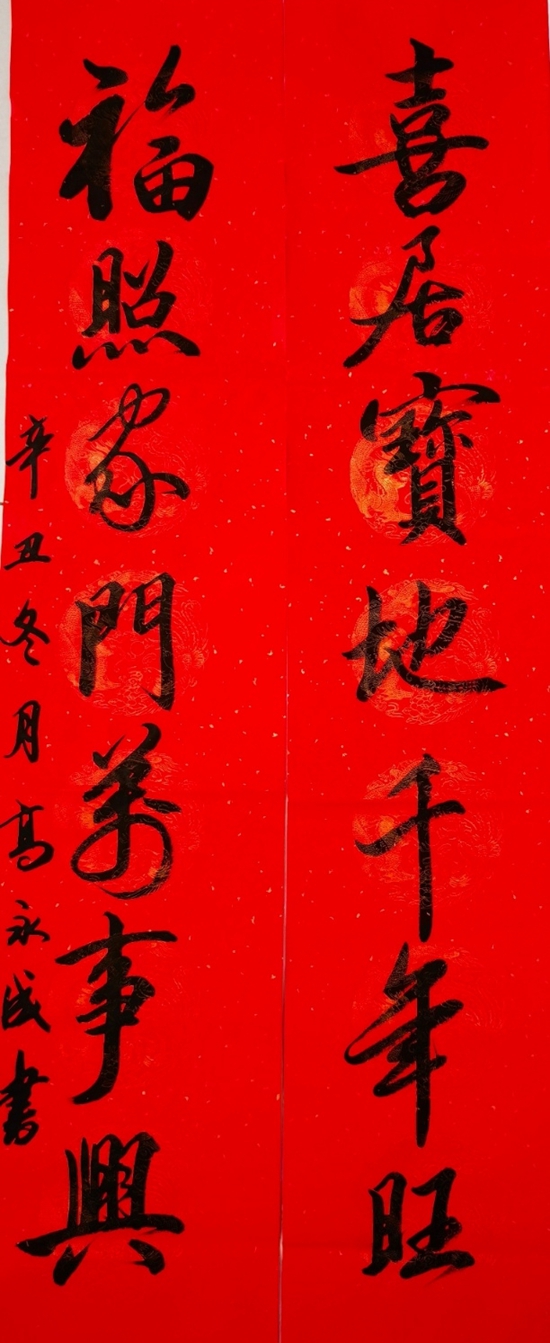 喜居寶地千年旺
福照家門萬事興
辛丑冬月高永成書